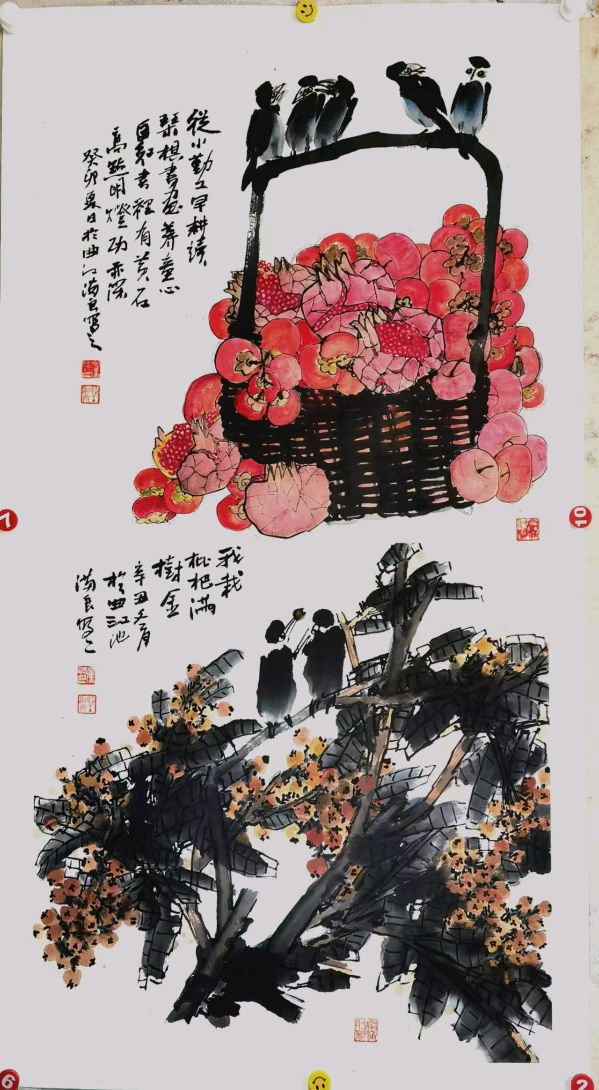 從小勤工早耕讀
琴棋書畫養童心
自知書裡有黃石
高照明燈功亦深
癸卯夏日於曲江滿良寫之
我栽
枇杷滿
樹金
辛丑
於曲江池
滿良寫之
7
10
6
2